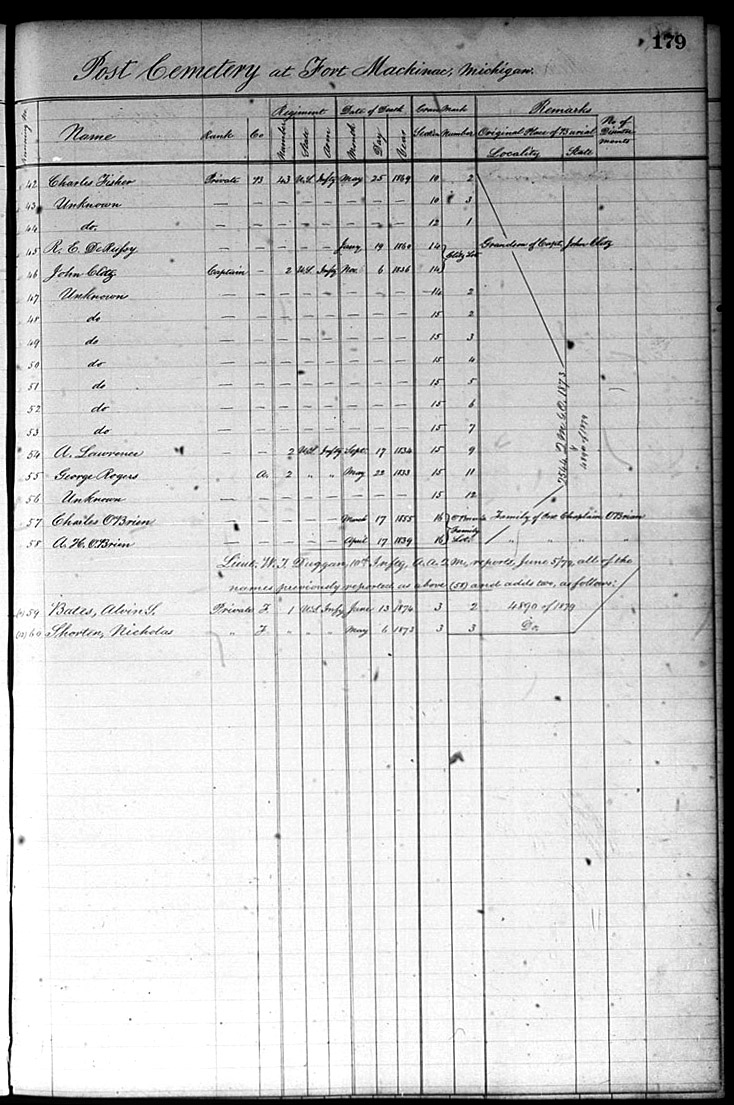 179
Post Cemetery at Fort Mackinac, Michigan.
Name Rank Co Regiment Number State Arm Date of Death Month Day Year Grave Mark Section Number Remarks Original Place of Burial Locality State No of Disinterments
42 Charles Fisher Private B 43 U.S. Infty May 25 1869 10 2
43 Unknown — — — — — — — — 10 3
44 do. — — — — — — — — 12 1
45 R. E. DeRussy Jany 19 1860 14 Clitz Lot Grandson of Capt. John Clitz
46 John Clitz Captain — 2 U.S. Infty Nov. 6 1836 14
47 Unknown — — — — — — — — 14 2
48 do — — — — — — — — 15 2
49 do — — — — — — — — 15 3
50 do — — — — — — — — 15 4
51 do — — — — — — — — 15 5
52 do — — — — — — — — 15 6
53 do — — — — — — — — 15 7
54 A. Lawrence — — 2 U.S. Infty Sept. 17 1834 15 9
55 George Rogers A. 2 " " May 22 1833 15 11
56 Unknown — — — — — — — — 15 12
57 Charles O'Brien — — — — — March 17 1855 16 O'Brien Family Lot. Family of Chaplain O'Brien
58 A. H. O'Brien — — — — — April 17 1839 16 " " " "
2544 Q.M.G.O. 1873
4890 of 1879
Lieut. W. T. Duggan, 10th Infty, A.A.Q.M., reports, June 5/79, all of the
names previously reported as above (58) and adds two, as follows:
59 Bates, Alvin S. Private F. 1 U.S. Infty June 13 1874 3 2 4890 of 1879
60 Shorten, Nicholas " F. " " " May 6 1873 3 3 Do.